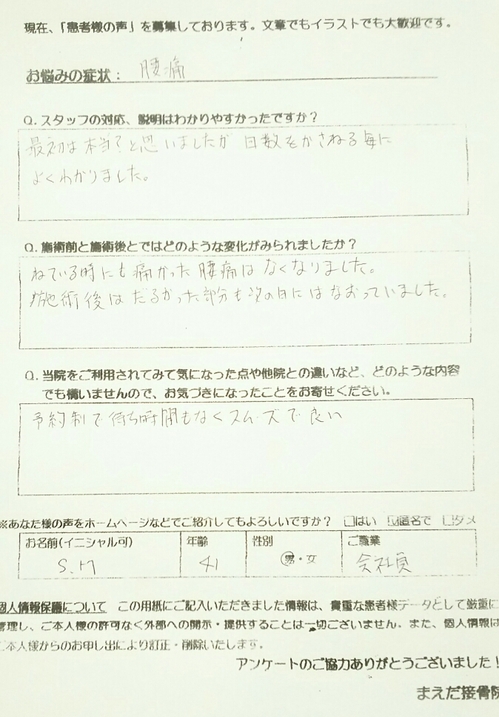 現在、「患者様の声」を募集しております。文章でもイラストでも大歓迎です。
お悩みの症状： 腰痛
Q. スタッフの対応、説明はわかりやすかったですか？
最初は本当？と思いましたが 日数をかさねる毎に
よくわかりました。
Q. 施術前と施術後とではどのような変化がみられましたか？
ねている時にも痛かった腰痛はなくなりました。
施術後はだるかった部分も次の日にはなおっていました。
Q. 当院をご利用されてみて気になった点や他院との違いなど、どのような内容
でも構いませんので、お気づきになったことをお寄せください。
予約制で待ち時間もなくスムーズで良い
※あなた様の声をホームページなどでご紹介してもよろしいですか？ □はい ☑匿名で □ダメ
お名前(イニシャル可) 年齢 性別 ご職業
S.M 41 男・女 会社員
個人情報保護について この用紙にご記入いただきました情報は、貴重な患者様データとして厳重に
管理し、ご本人様の許可なく外部への開示・提供することは一切ございません。また、個人情報は
ご本人様からのお申し出により訂正・削除いたします。
アンケートのご協力ありがとうございました！
まえだ接骨院